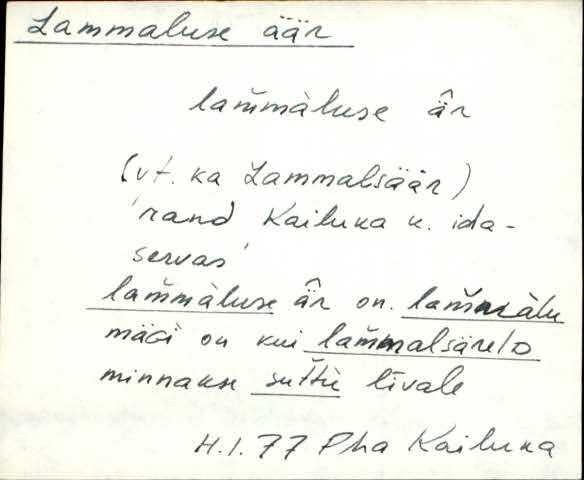 Lammaluse äär
lam̆màluse är̂
(vt. ka Lammalsäär)
'rand Kailuka k. ida-
servas'
lam̆màluse är̂ on. lam̆màlu
mäGi on kui lam̆malsärelD
minnakse sut̆tù līvale
H.I. 77 Pha Kailuka